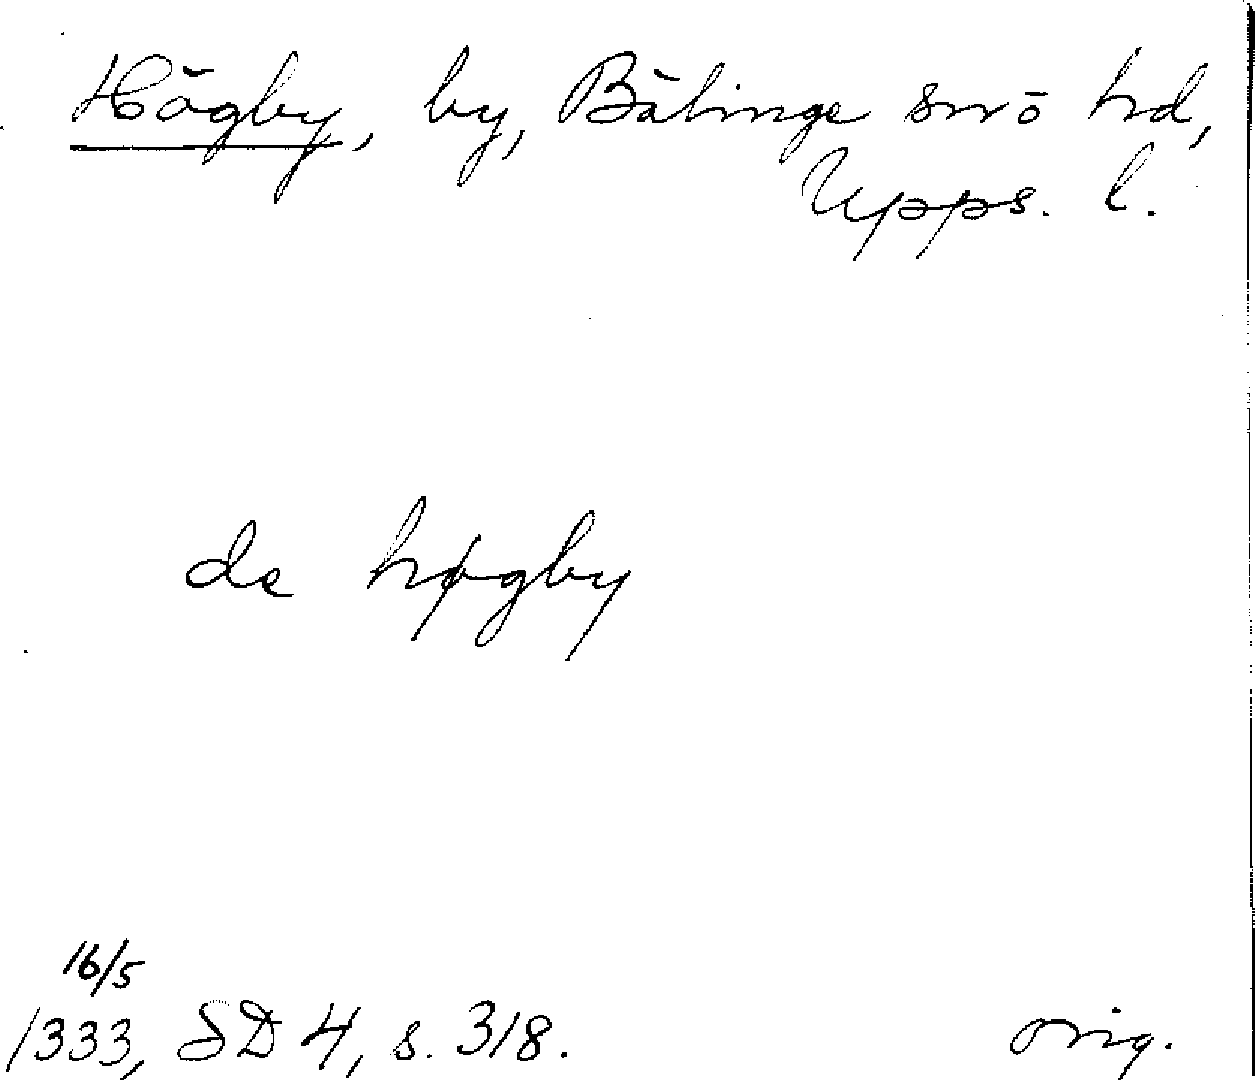 Högby, by, Bälinge sn o hd,
Upps. l.
de høgby
16/5
1333, SD 4, s. 318.
orig.